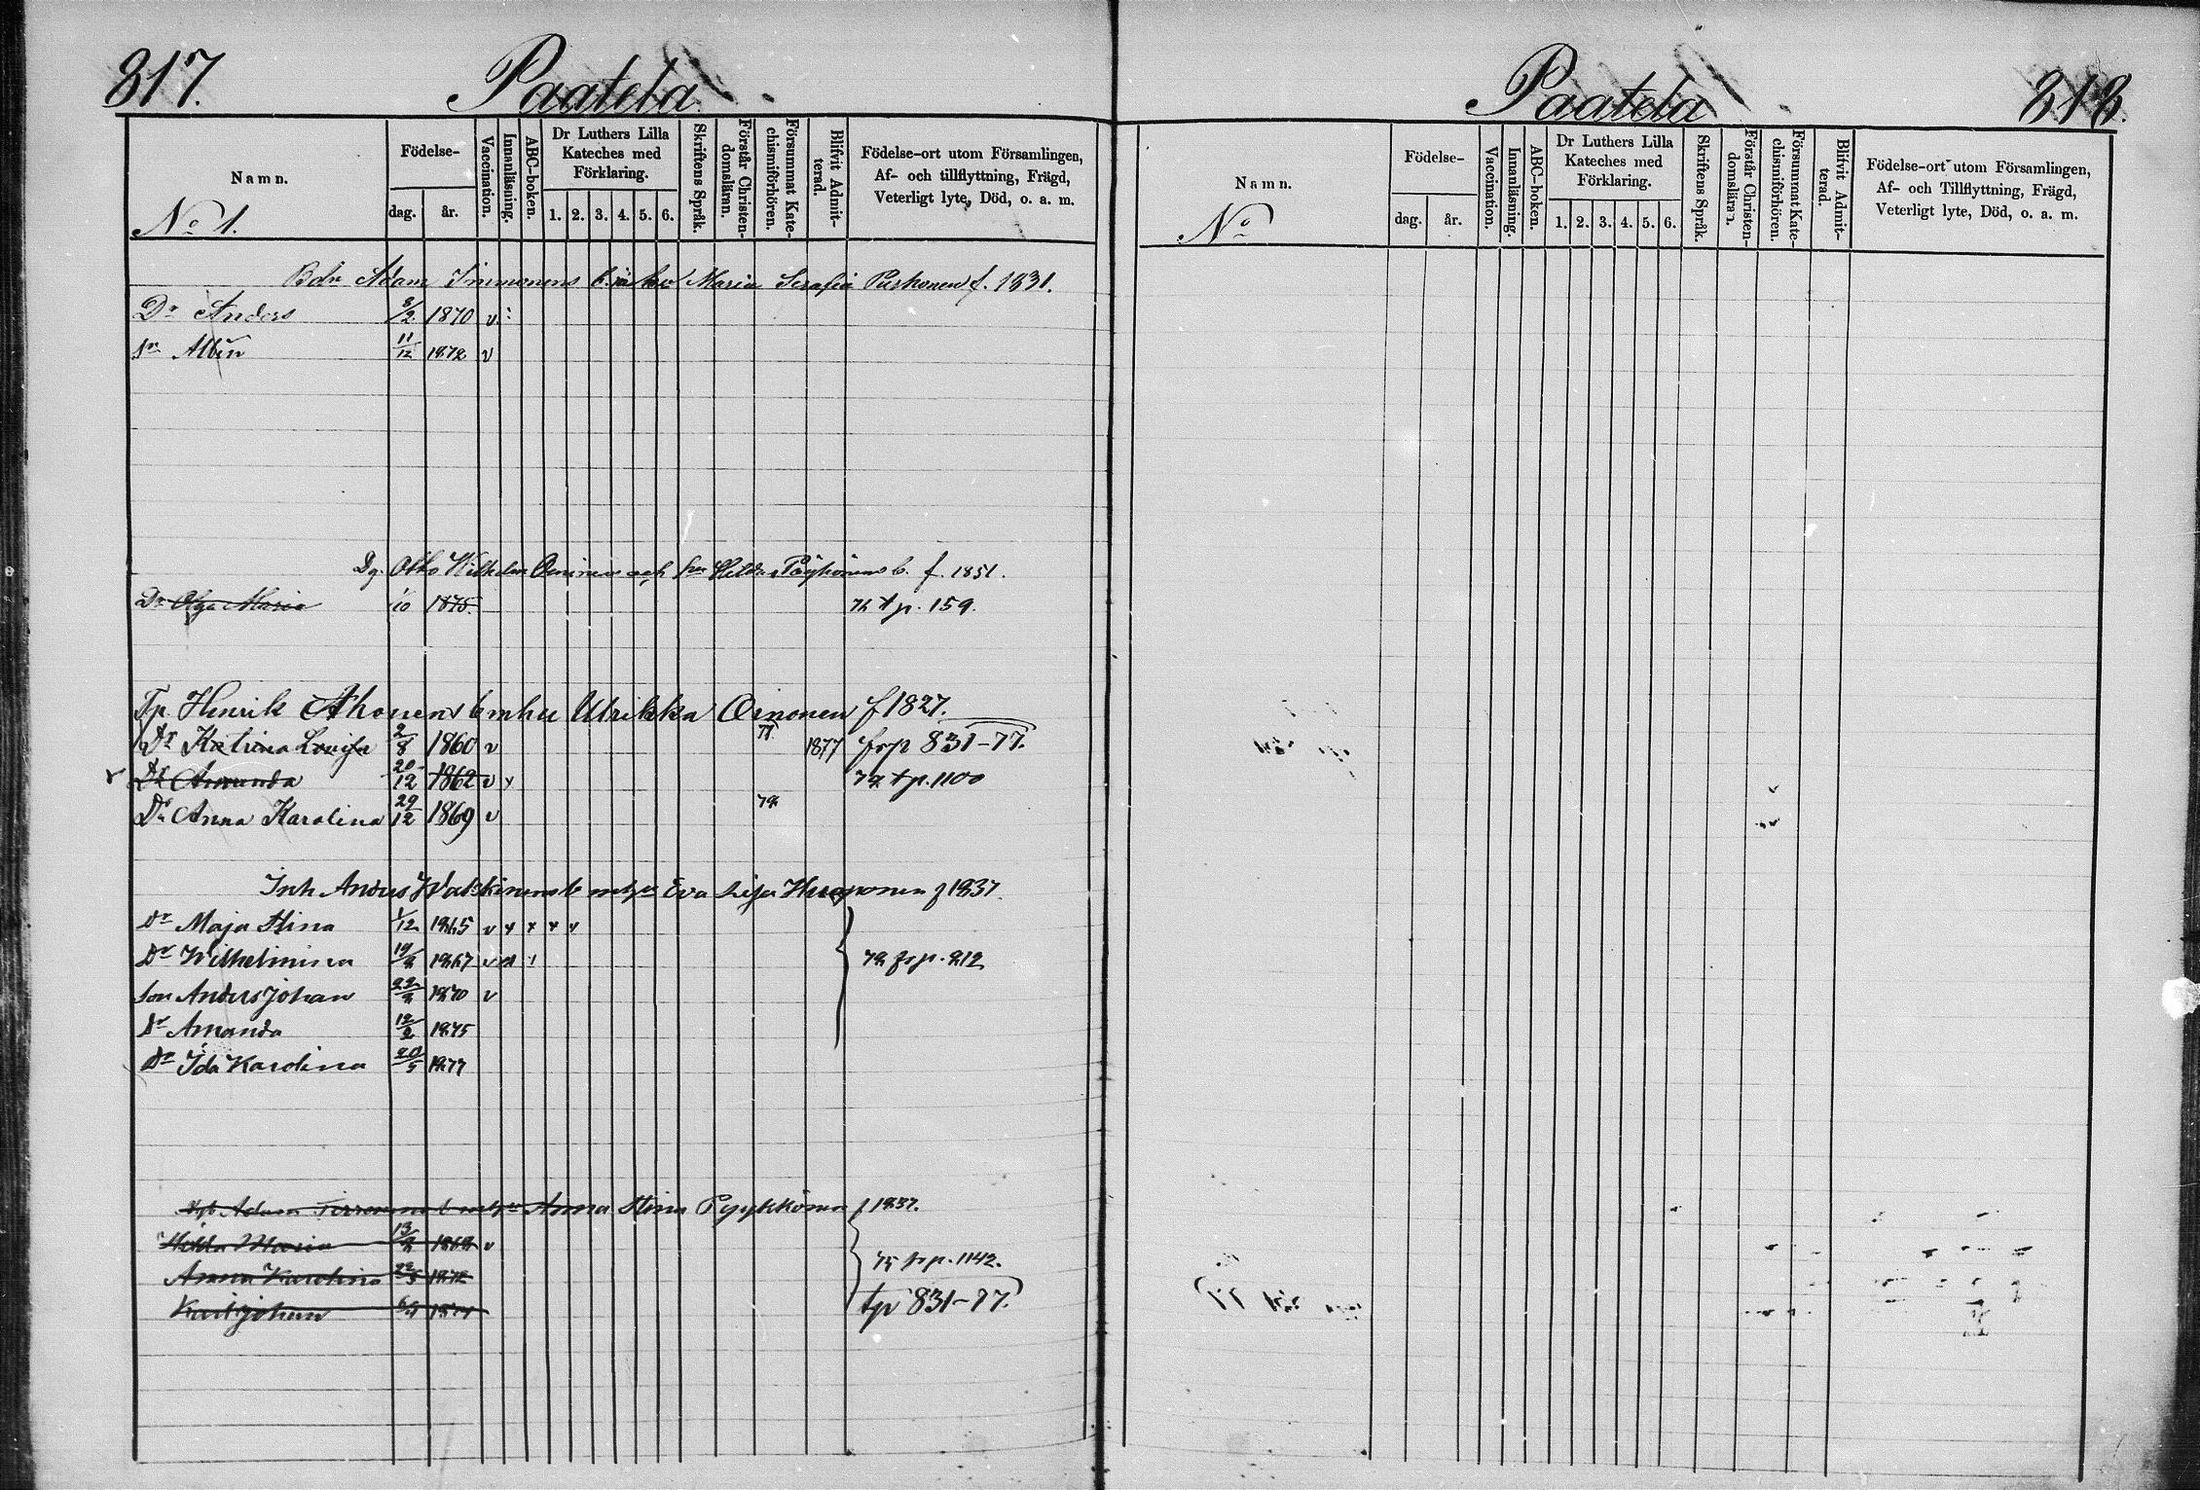 817.
Paatela
Namn.
No 1.
Födelse-
dag.
år.
Vaccination.
Innanläsning.
ABC-boken.
Dr Luthers Lilla
Kateches med
Förklaring.
1. 2. 3. 4. 5. 6.
Skriftens Språk.
Förstår Christen-
domsläran.
Försummat Kate-
chismiförhören.
Blifvit Admit-
terad.
Födelse-ort utom Församlingen,
Af- och tillflyttning, Frägd,
Veterligt lyte, Död, o. a. m.
Adam Immonens Maria Serafia f. 1831.
Dr Anders 8/2 1870 v
Albin 11/12 1872 v
Otto Wilhelm Oinonen och Hilda f. 1851.
Dr Olga Maria 1/10 1875. p. 159.
Henrik Ahonens Ulrikka Oinonen f 1827.
Dr Katrina Lovisa 2/8 1860 v 77 1877 frp 831-77.
Dr Amanda 20/12 1862 v tp. 1100
Dr Anna Karolina 29/12 1869 v 78
Inh Anders Eva Lisa f 1837.
Dr Maja Stina 1/12 1865 v
Dr Wilhelmina 1867 v 78 frp. 212
Son Anders Johan 1870 v
Dr Amanda 12/2 1875
Dr Ida Karolina 20/5 1877
Adam Anna Stina Pyykkönen f 1837.
Hilda Maria 1869 v
Anna Karolina 1872 75 frp. 1142.
Karl Johan tp 831-77.
Paatela
818.
Namn.
No
Födelse-
dag.
år.
Vaccination.
Innanläsning.
ABC-boken.
Dr Luthers Lilla
Kateches med
Förklaring.
1. 2. 3. 4. 5. 6.
Skriftens Språk.
Förstår Christen-
domsläran.
Försummat Kate-
chismiförhören.
Blifvit Admit-
terad.
Födelse-ort utom Församlingen,
Af- och Tillflyttning, Frägd,
Veterligt lyte, Död, o. a. m.